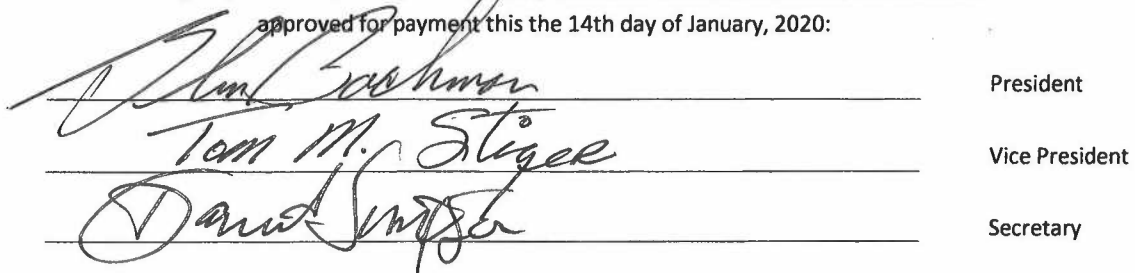 approved for payment this the 14th day of January, 2020:
Bachman President
Tom M. Stiger Vice President
David Simpson Secretary